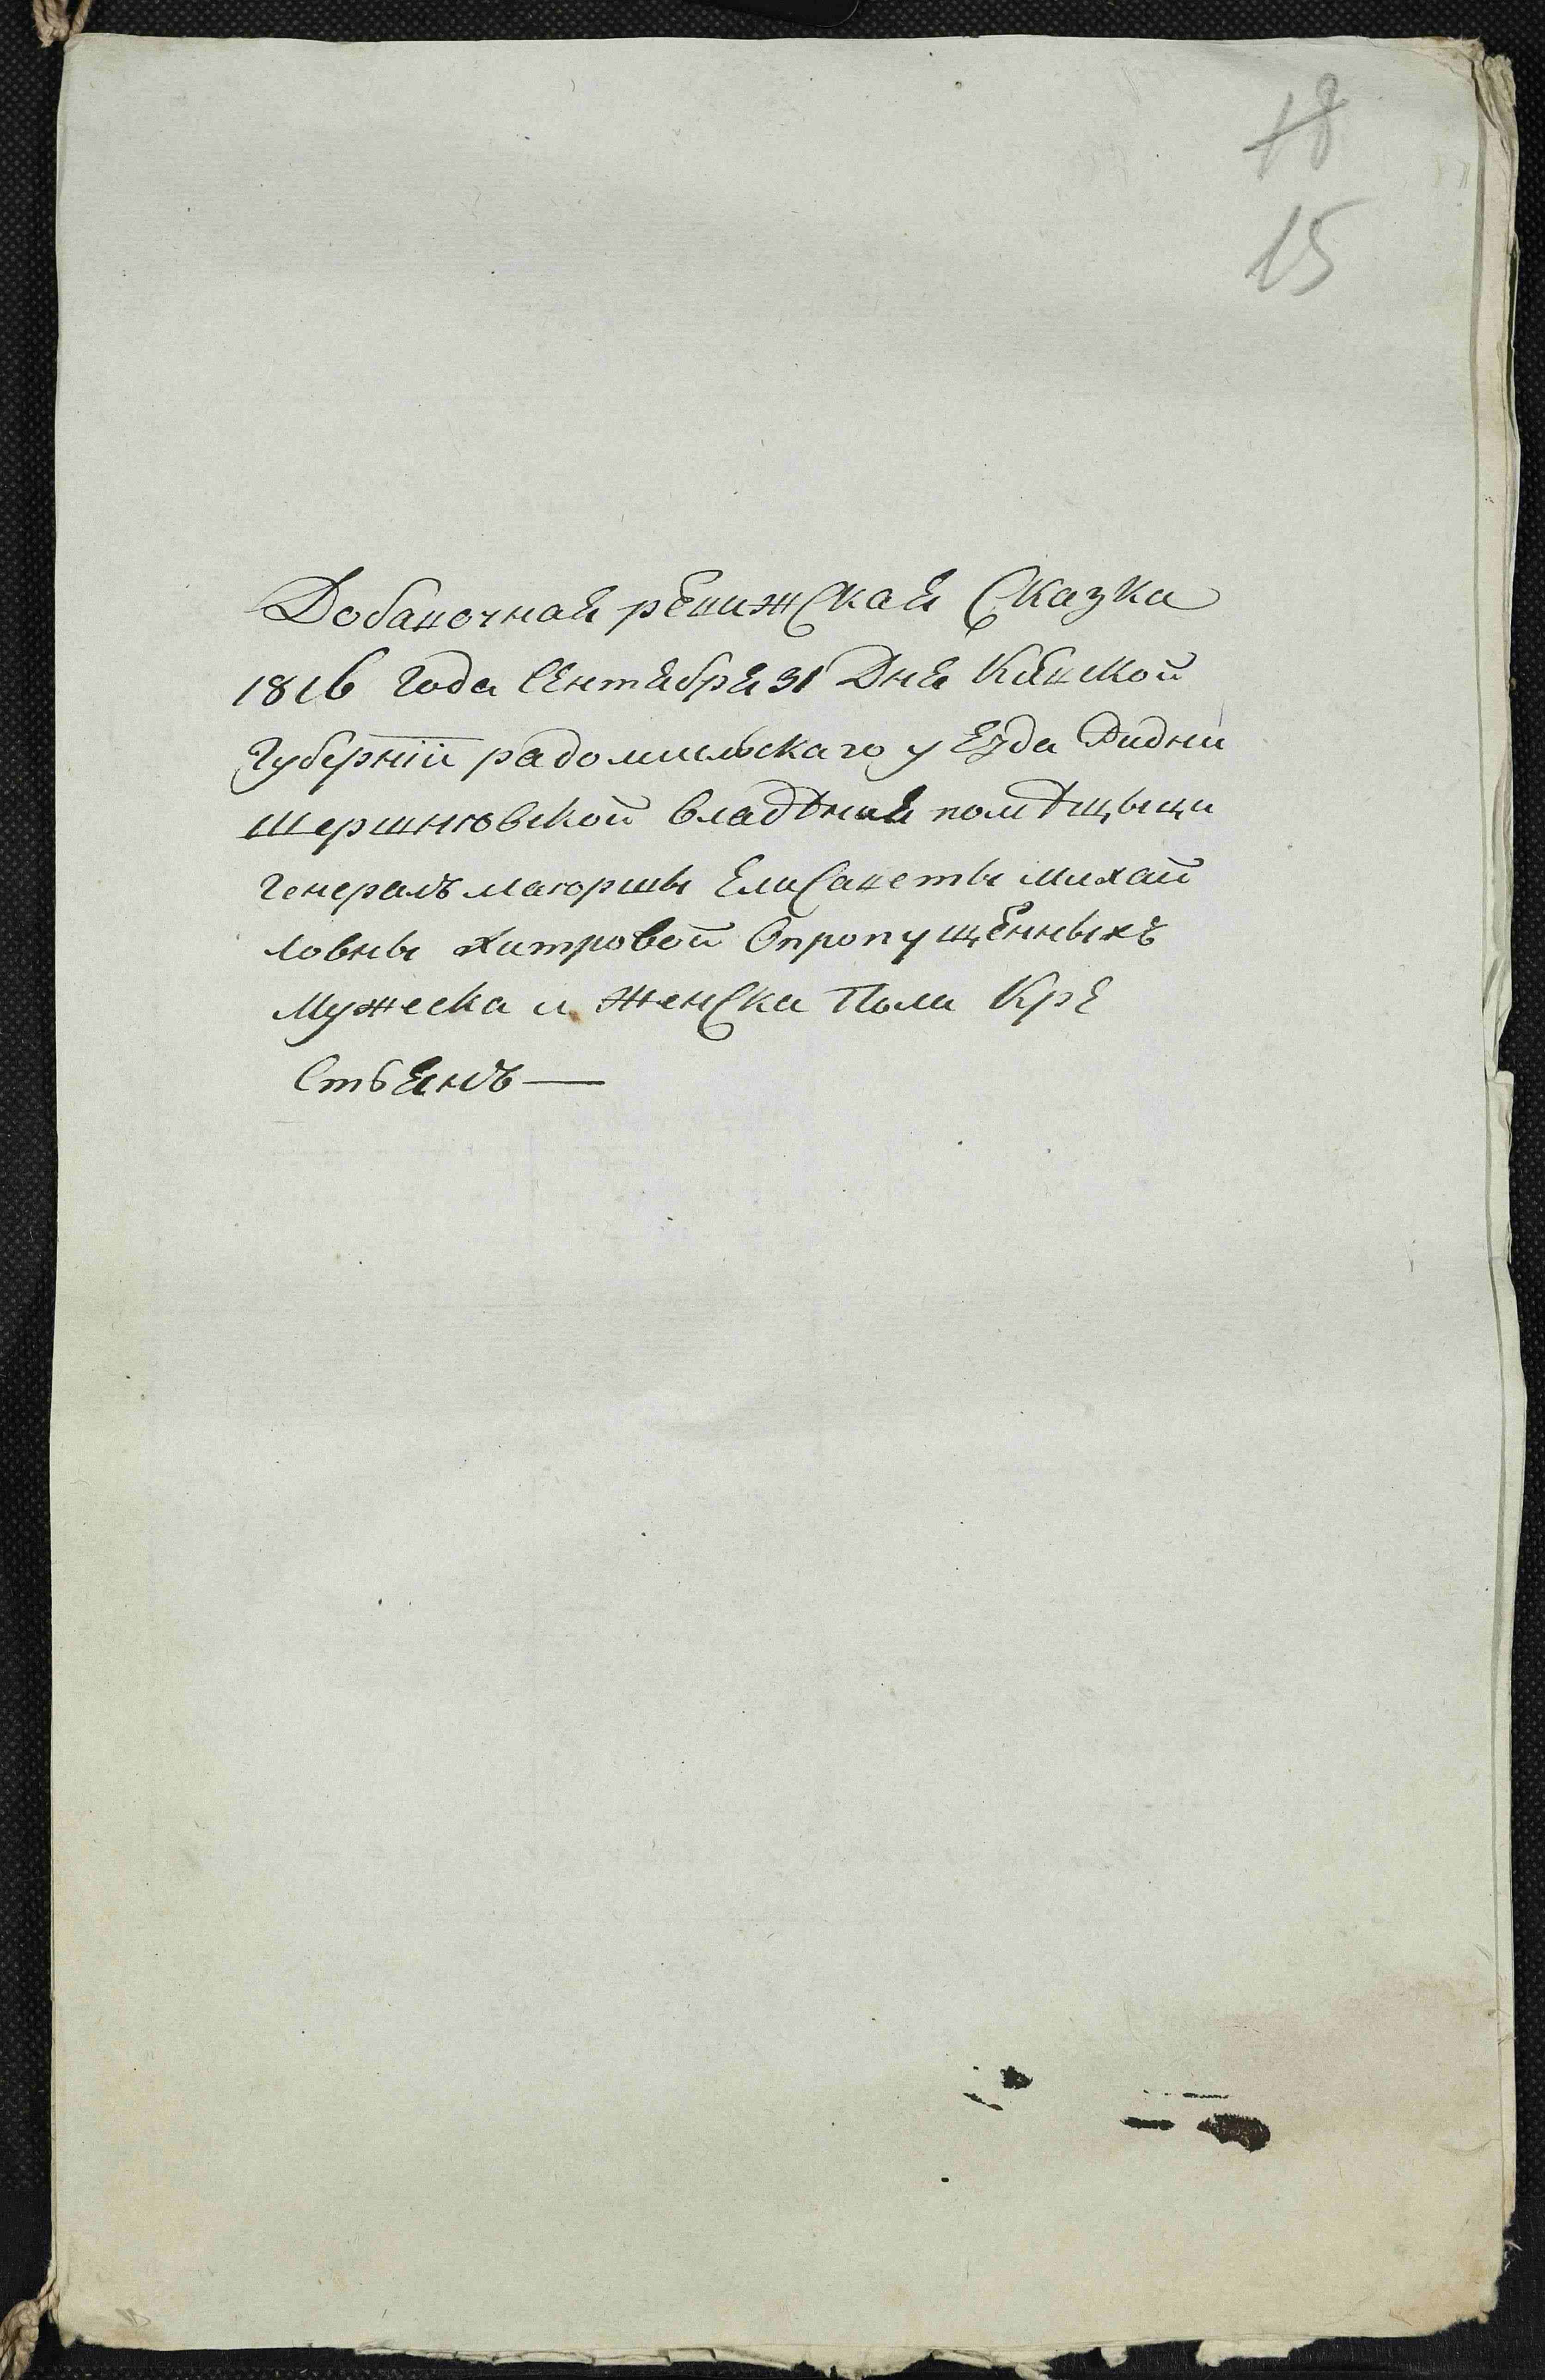 18
15
Добавочная ревижская Сказка
1816 года Сентября 31 Дня Киевской
Губернїи радомысльскаго уезда
Шершнювской владѣния помѣщыци
Генералъ маюршы Елисаветы Михай
ловны Хитровой Опропущенныхъ
Мужеска и Женска Пола Кре
Стьянъ —